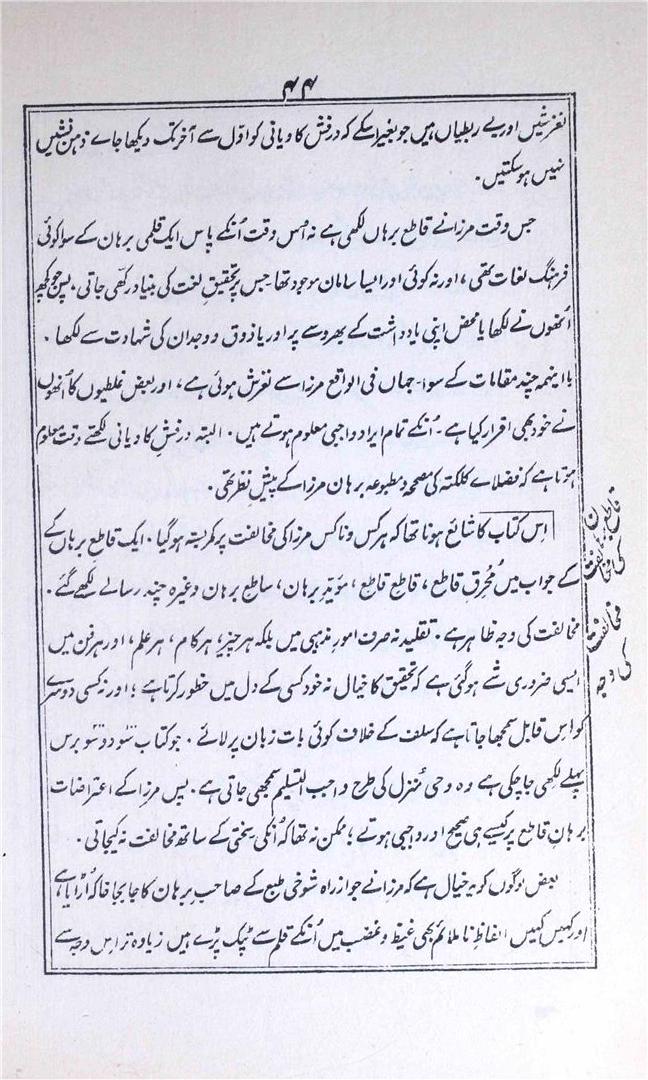 ۴۴
لغزشیں اور بے ربطیاں ہیں جو بغیر اسکے کہ درفش کاویانی کو اوّل سے آخر تک دیکھا جاے ذہن نشیں
نہیں ہو سکتیں۔
جس وقت مرزا نے قاطع برہان لکھی ہے نہ اُس وقت اُنکے پاس ایک قلمی برہان کے سوا کوئی
فرہنگ لغات تھی، اور نہ کوئی اور ایسا سامان موجود تھا۔ جس پر تحقیقِ لغت کی بنیاد رکھی جاتی، پس جو کچھ
اُنھوں نے لکھا یا محض اپنی یادداشت کے بھروسے پر اور یا ذوق و وجدان کی شہادت سے لکھا۔
با اینہمہ چند مقامات کے سوا۔ جہاں فی الواقع مرزا سے لغزش ہوئی ہے، اور بعض غلطیوں کا اُنھوں
نے خود بھی اقرار کیا ہے۔ اُنکے تمام ایراد واجبی معلوم ہوتے ہیں۔ البتہ درفشِ کاویانی لکھتے وقت معلوم
ہوتا ہے کہ فضلاے کلکتہ کی مصححہ و مطبوعہ برہان مرزا کے پیشِ نظر تھی۔
اِس کتاب کا شائع ہونا تھا کہ ہر کس و ناکس مرزا کی مخالفت پر کمربستہ ہو گیا۔ ایک قاطع برہان کے
کے جواب میں مُحرقِ قاطع، قاطعِ قاطع، مؤیّدِ برہان، ساطعِ برہان وغیرہ چند رسالے لکھے گئے۔
مخالفت کی وجہ ظاہر ہے۔ تقلید نہ صرف امورِ مذہبی میں بلکہ ہر چیز، ہر کام، ہر علم، اور ہر فن میں
ایسی ضروری شے ہو گئی ہے کہ تحقیق کا خیال نہ خود کسی کے دل میں خطور کرتا ہے؛ اور نہ کسی دوسرے
کو اِس قابل سمجھا جاتا ہے کہ سلف کے خلاف کوئی بات زبان پر لائے۔ جو کتاب سو دو سو برس
پہلے لکھی جا چکی ہے وہ وحی مُنزل کی طرح واجب التسلیم سمجھی جاتی ہے۔ پس مرزا کے اعتراضات
برہانِ قاطع پر کیسے ہی صحیح اور واجبی ہوتے؛ ممکن نہ تھا کہ اُنکی سختی کے ساتھ مخالفت نہ کیجاتی۔
بعض لوگوں کو یہ خیال ہے کہ مرزا نے جو از راہِ شوخیِ طبع کے صاحبِ برہان کا جا بجا خاکہ اُڑایا ہے
اور کہیں کہیں الفاظِ ناملائم بھی غیظ و غضب میں اُنکے قلم سے ٹپک پڑے ہیں زیادہ تر اِس وجہ سے
قاطع برہان
کی مخالفت
مخالفت
کی وجہ